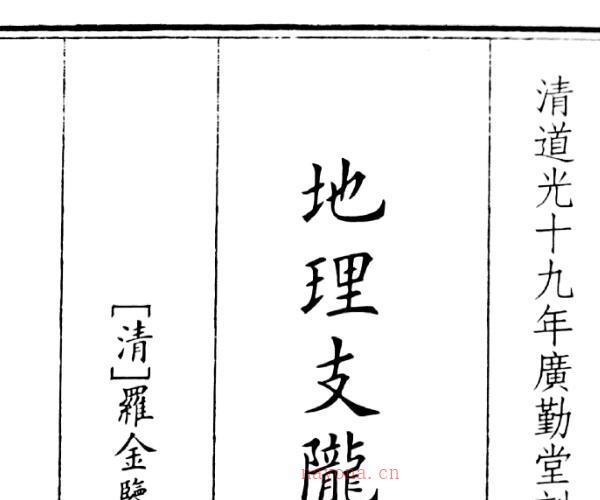 清道光十九年廣勤堂
地理支隴
[清]羅金鑒
nayona.cn